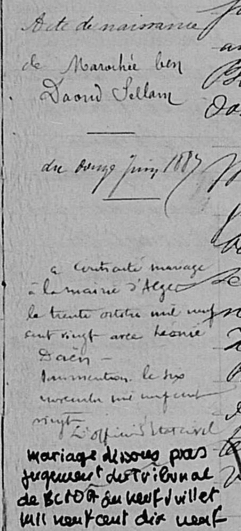 Acte de naissance
de Marochée ben
Daoud Sellam
du onze Juin 1887
a contracté mariage
à la mairie d'Alger
le trente octobre mil neuf
cent vingt avec Léonie
Daën -
mention le six
novembre mil neuf cent
vingt
L'officier
mariage dissous par
jugement du Tribunal
de du neuf Juillet
mil neuf cent dix neuf